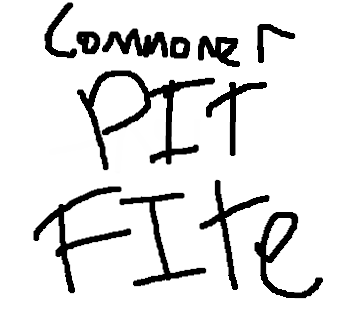 Commoner
PIT
FITe